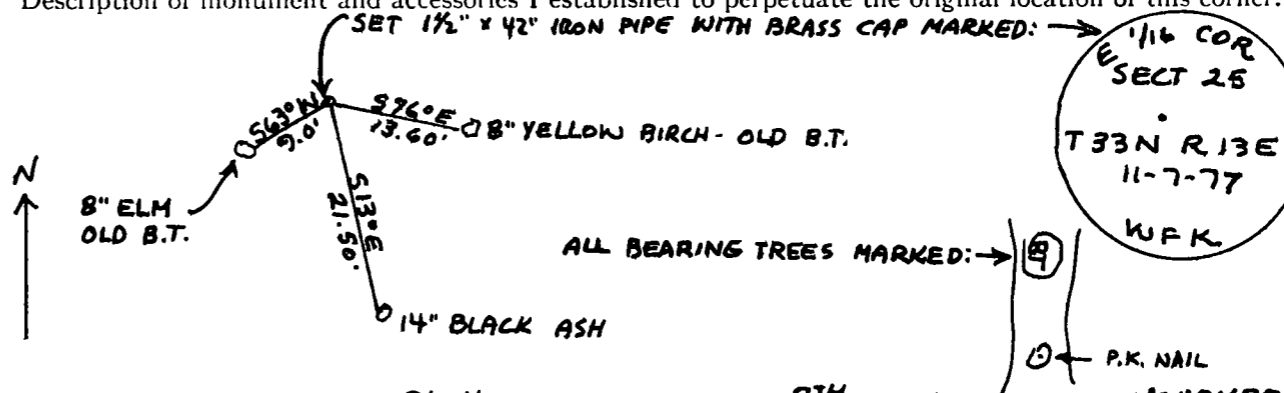 Description of monument and accessories I established to perpetuate the original location of this corner.
SET 1½" x 42" IRON PIPE WITH BRASS CAP MARKED:
E 1/16 COR
SECT 25
T 33N R 13E
11-7-77
WFK
S63°W
9.0'
S76°E
13.60'
8" YELLOW BIRCH - OLD B.T.
N
8" ELM
OLD B.T.
S13°E
21.50'
14" BLACK ASH
ALL BEARING TREES MARKED:
BT
P.K. NAIL